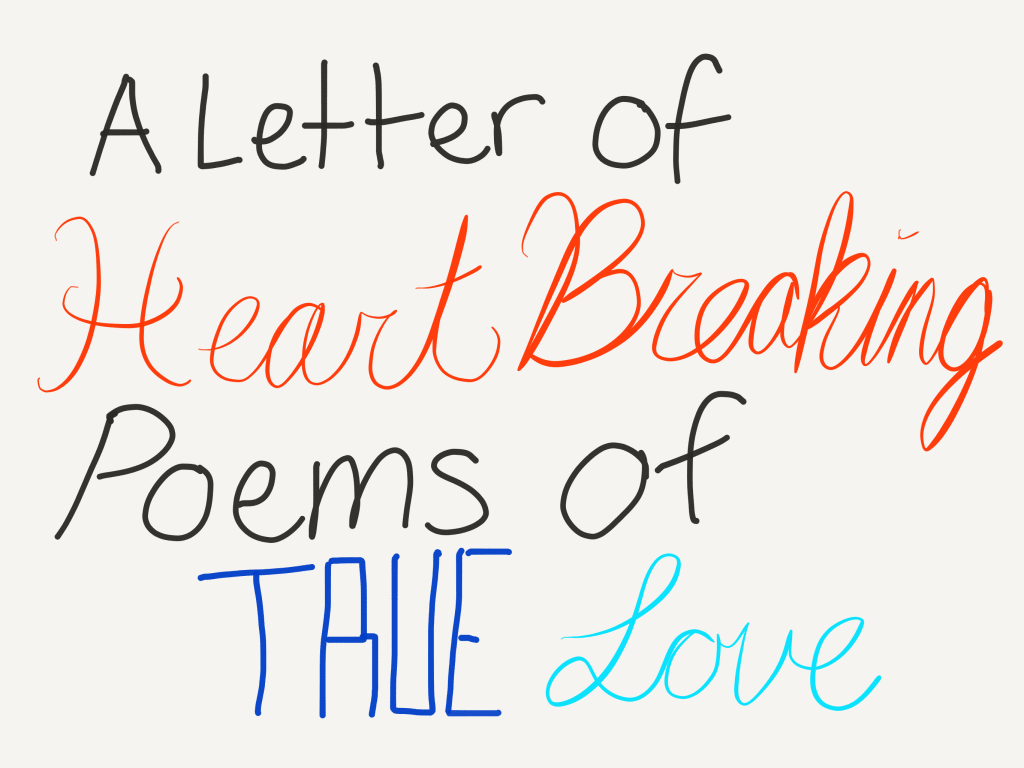 A Letter of
Heart Breaking
Poems of
TRUE Love